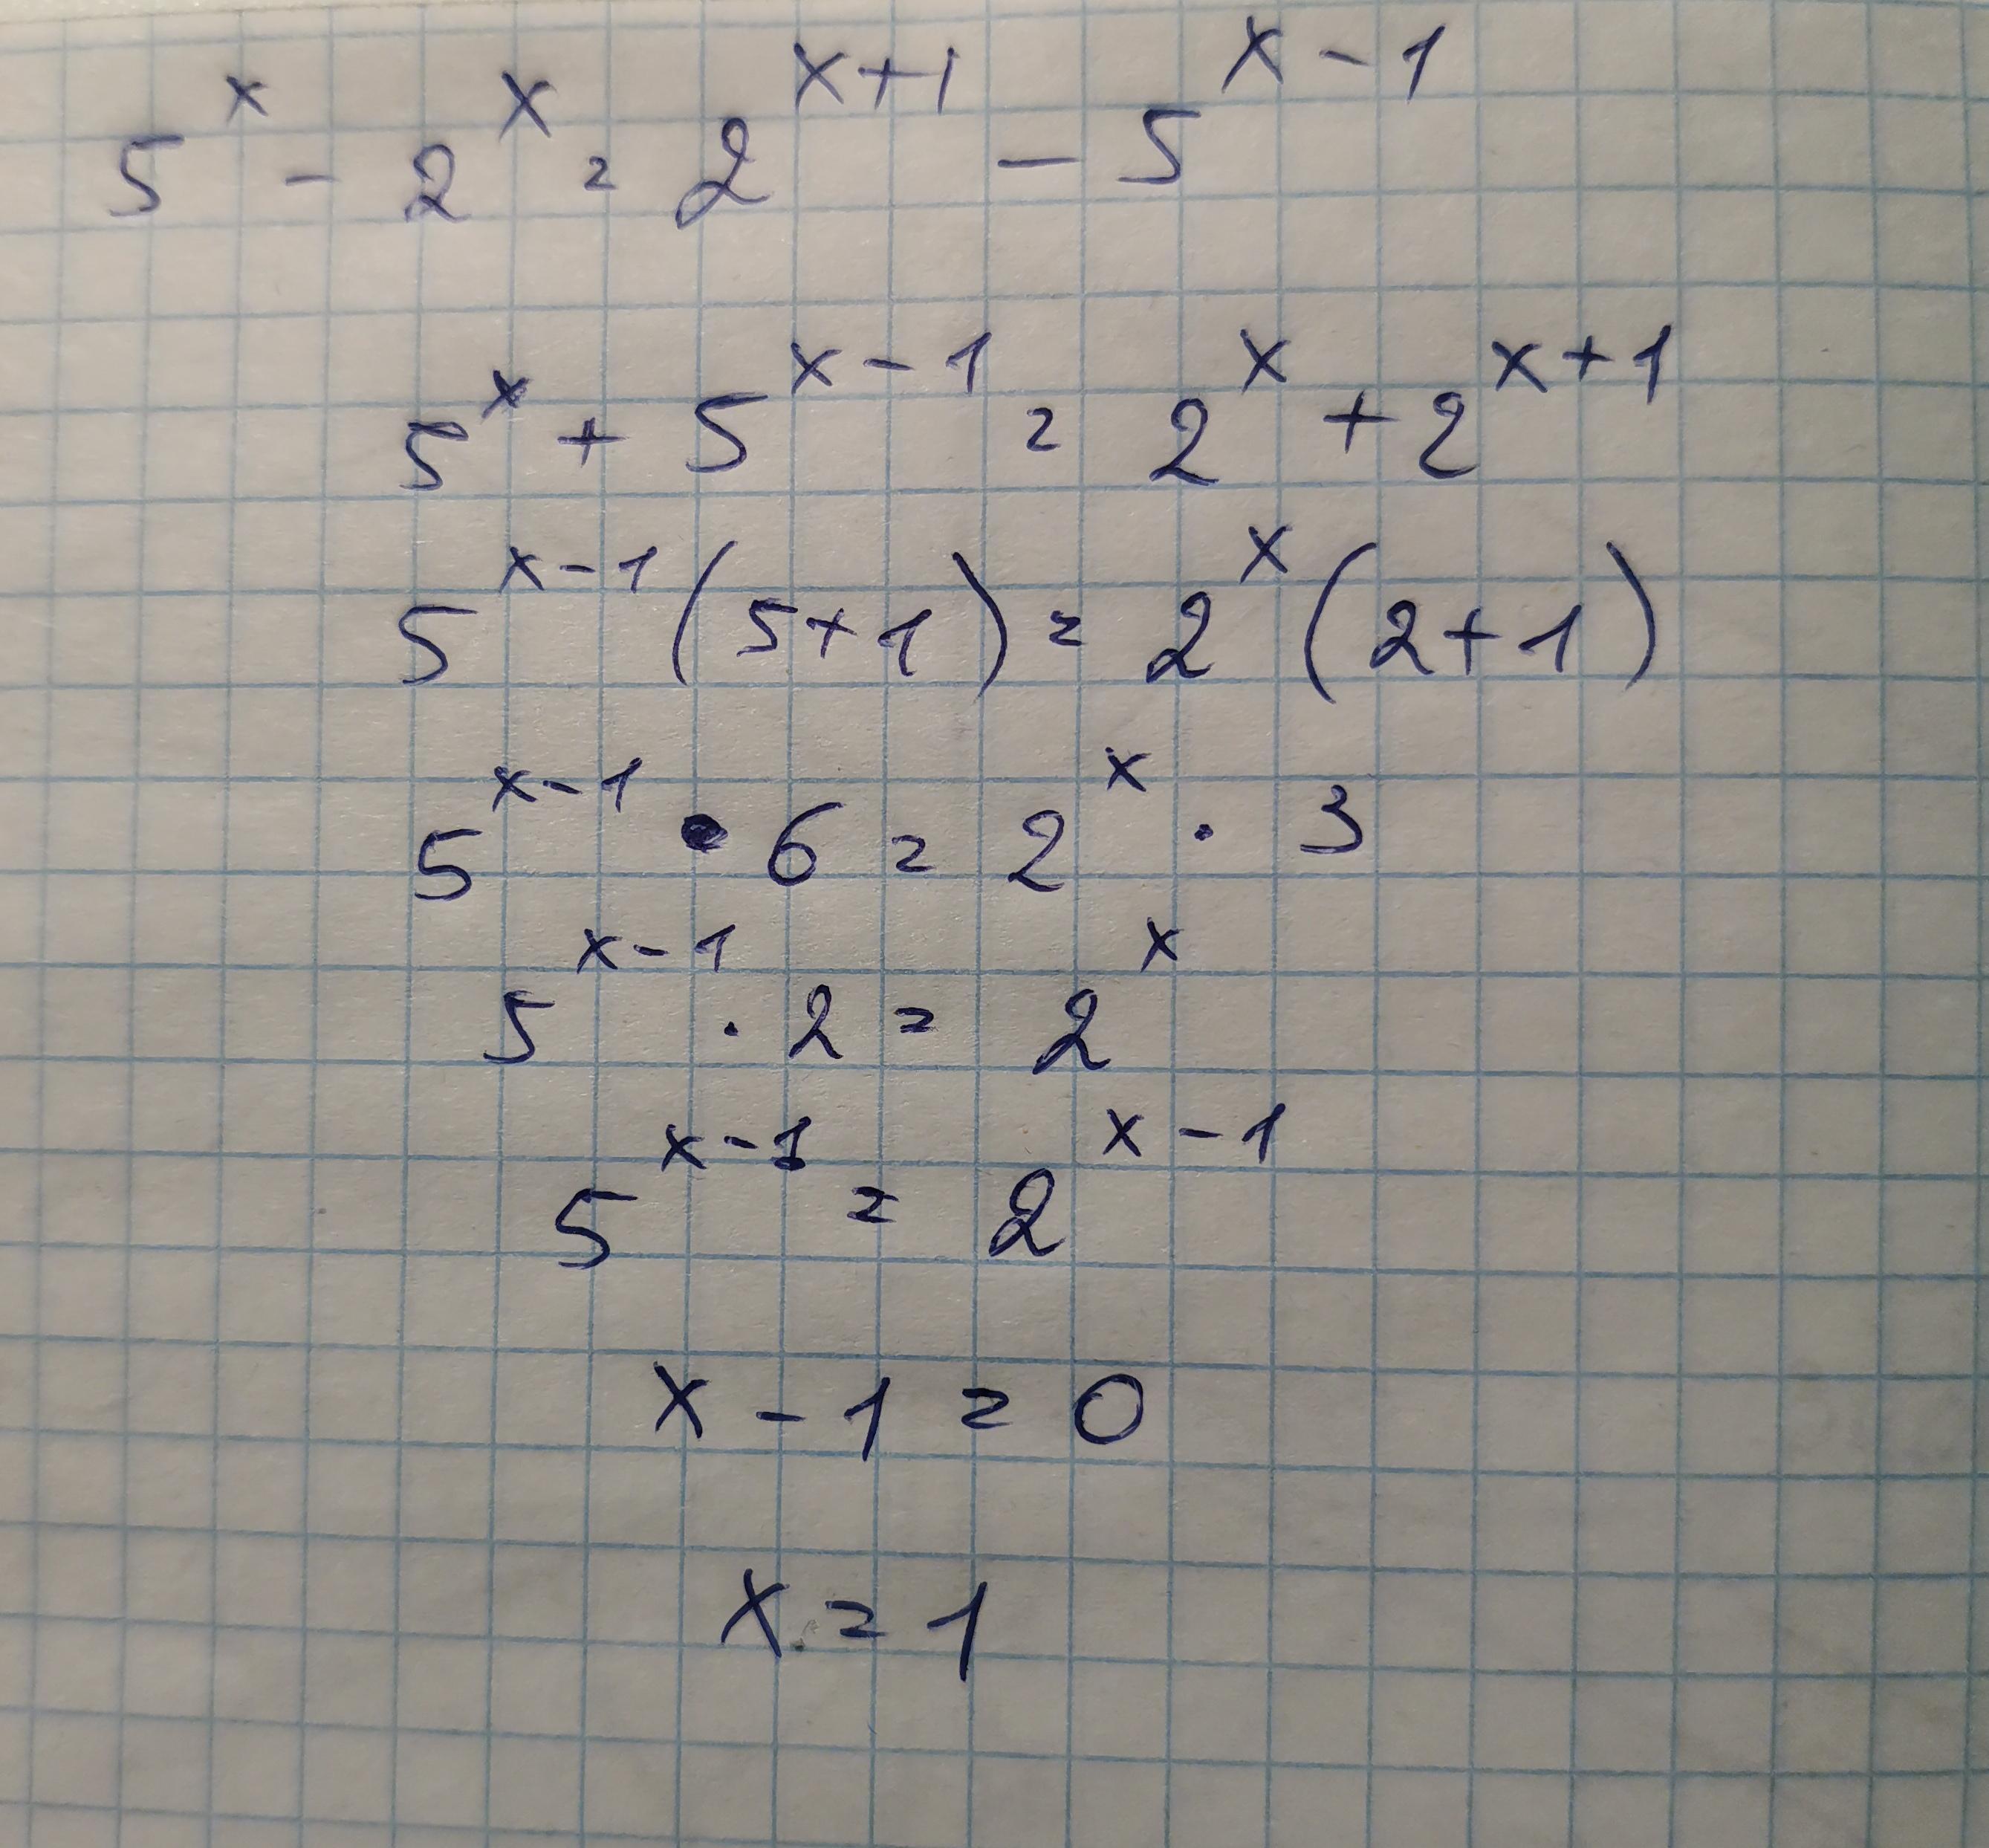 5^x - 2^x = 2^{x+1} - 5^{x-1}
5^x + 5^{x-1} = 2^x + 2^{x+1}
5^{x-1} (5+1) = 2^x (2+1)
5^{x-1} · 6 = 2^x · 3
5^{x-1} · 2 = 2^x
5^{x-1} = 2^{x-1}
x - 1 = 0
x = 1